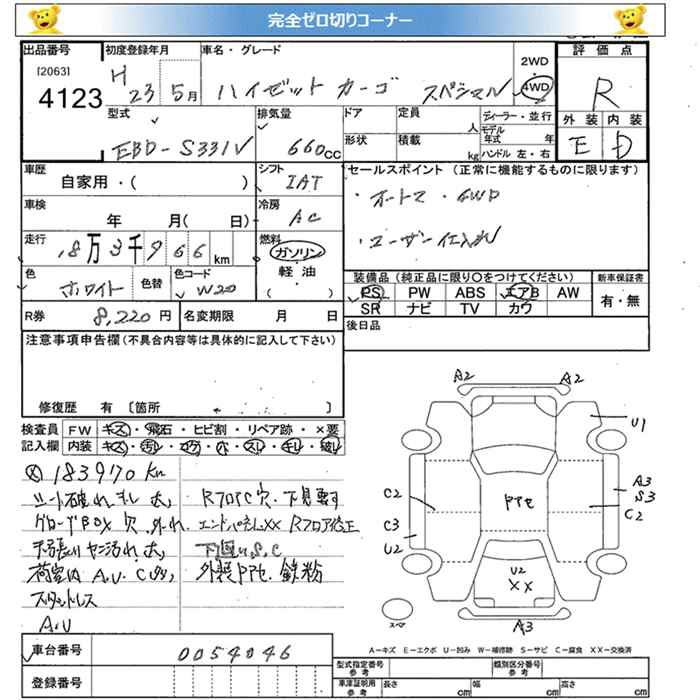 完全ゼロ切りコーナー
出品番号 初度登録年月 車名・グレード 評価点
[2063]
4123 H 23 5月 ハイゼットカーゴ スペシャル 2WD 4WD R
型式 排気量 ドア 定員 人 ディーラー・並行 外装 内装
EBD-S331V 660cc 形状 積載 kg モデル年式 年 ハンドル 左・右 E D
車歴 シフト セールスポイント (正常に機能するものに限ります)
自家用・( ) IAT
車検 冷房 ・オートマ・4WD
年 月( 日) AC
走行 燃料 ・ユーザー仕入れ
18万3千966km ガソリン
色 色替 色コード 軽油 装備品 (純正品に限り○をつけてください) 新車保証書
ホワイト W20 ( ・ ) PS PW ABS エアB AW 有・無
R券 8,220円 名変期限 月 日 SR ナビ TV カワ
後日品
注意事項申告欄(不具合内容等は具体的に記入して下さい)
修復歴 有 [箇所 ]
検査員 FW キズ・飛石・ヒビ割・リペア跡・×要
記入欄 内装 キズ・汚レ・コゲ・穴・スレ・キレ・破レ
183970Km
シート破れ キレ 大 RフロアC穴 下見要す
グローブBOX 穴 外れ エンドパネルXX Rフロア修正
天張り ヤニ汚れ 大 下廻り S.C
荷室内 A.U.C 外装PPセ 鉄粉
スタットレス
A.U
A2 A2
U1
A3
S3
C2 C2
C3
U2
PPセ
U2
XX
スペア
A3
車台番号 0054046
A-キズ E-エクボ U-凹み W-補修跡 S-サビ C-腐食 XX-交換済
登録番号
型式指定番号 参考 類別区分番号 参考
車庫証明用 参考 長さ cm 幅 cm 高さ cm